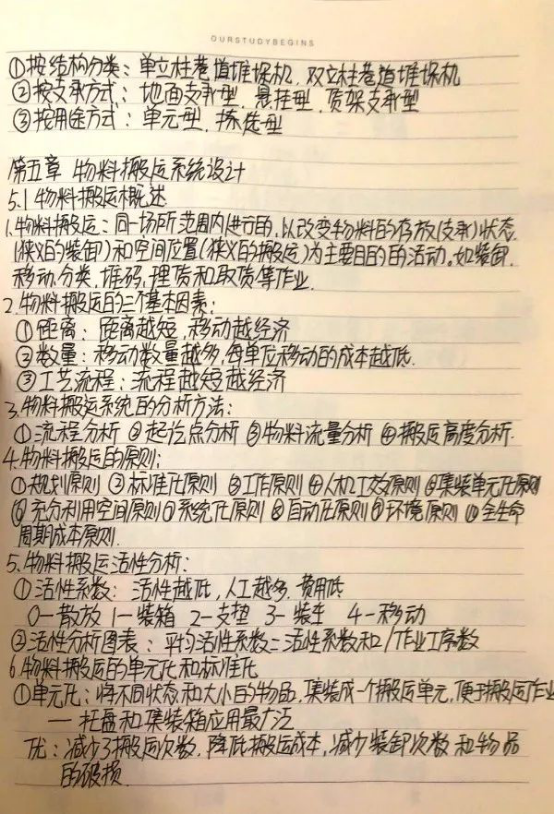 OURSTUDYBEGINS
①按结构分类：单立柱巷道堆垛机，双立柱巷道堆垛机
②按支承方式：地面支承型，悬挂型，货架支承型
③按用途方式：单元型，拣选型
第五章 物料搬运系统设计
5.1物料搬运概述
1.物料搬运：同一场所范围内进行的，以改变物料的存放(支承)状态
(狭义的装卸)和空间位置(狭义的搬运)为主要目的的活动。如装卸，
移动，分类，堆码，理货和取货等作业.
2.物料搬运的三个基本因素：
①距离：距离越短，移动越经济
②数量：移动数量越多，每单位移动的成本越低.
③工艺流程：流程越短越经济
3.物料搬运系统的分析方法：
①流程分析 ②起讫点分析 ③物料流量分析 ④搬运高度分析.
4.物料搬运的原则：
①规划原则 ②标准化原则 ③工作原则 ④人机工效原则 ⑤集装单元化原则
⑥充分利用空间原则 ⑦系统化原则 ⑧自动化原则 ⑨环境原则 ⑩全生命
周期成本原则.
5.物料搬运活性分析：
①活性系数：活性越低，人工越多，费用低
0—散放 1—装箱 2—支垫 3—装车 4—移动
②活性分析图表：平均活性系数=活性系数和/作业工序数
6.物料搬运的单元化和标准化
①单元化：将不同状态和大小的物品，集装成一个搬运单元，便于搬运作业
— 托盘和集装箱应用最广泛
优：减少了搬运次数，降低搬运成本，减少装卸次数和物品
的破损.